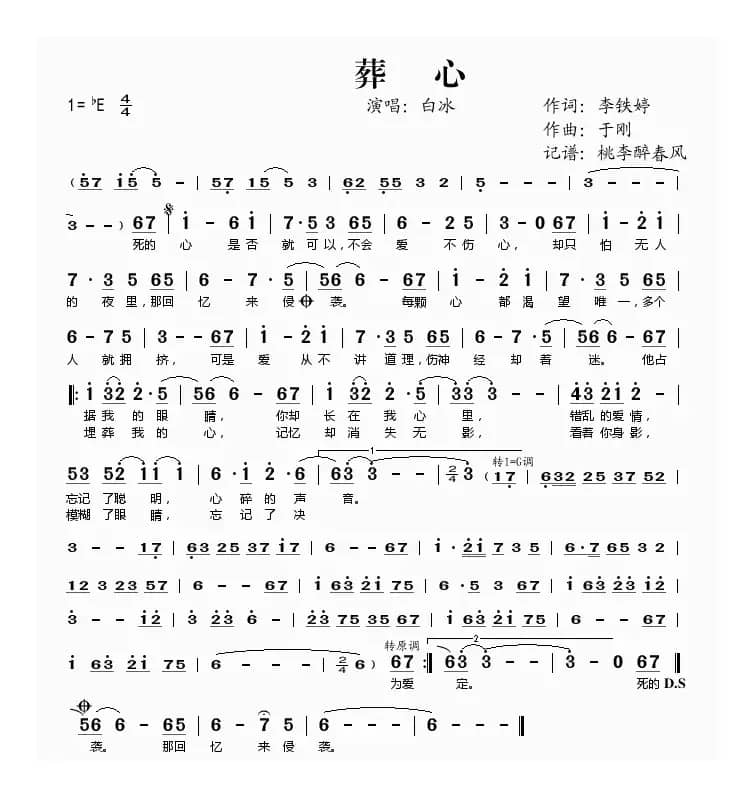 葬 心
1= ♭E 4/4 演唱：白冰 作词：李铁婷
作曲：于刚
记谱：桃李醉春风
( 57 15 5 - | 57 15 5 3 | 62 55 3 2 | 5 - - - | 3 - - - |
3 - - ) 67 | 1 - 6 1 | 7 · 5 3 65 | 6 - 2 5 | 3 - 0 67 | 1 - 2 1 |
死的 心 是否 就可以，不会 爱 不伤 心，却只 怕 无人
7 · 3 5 65 | 6 - 7 · 5 | 56 6 - 67 | 1 - 2 1 | 7 · 3 5 65 |
的 夜里，那回 忆 来 侵 袭。 每颗 心 都渴 望 唯一，多个
6 - 7 5 | 3 - - 67 | 1 - 2 1 | 7 · 3 5 65 | 6 - 7 · 5 | 56 6 - 67 |
人 就拥 挤，可是 爱 从不 讲 道理，伤神 经 却 着 迷。 他占
|: 1 32 2 · 5 | 56 6 - 67 | 1 32 2 · 5 | 32 3 - - | 43 21 2 - |
据我 的眼 睛， 你却 长在 我心 里， 错乱的爱情，
埋葬 我的 心， 记忆 却消 失无 影， 看着你身影，
53 52 1 1 1 | 6 · 1 2 · 6 | 63 3 - - | 2/4 3 ( 17 | 632 25 37 52 |
1
转1=G调
忘记了聪 明， 心碎的声 音。
模糊了眼 睛， 忘记了决
3 - - 17 | 63 25 37 17 | 6 - - 67 | 1 · 21 7 35 | 6 · 7 65 3 2 |
12 3 23 57 | 6 - - 67 | 1 63 21 75 | 6 · 5 - | 1 63 23 12 |
3 - - 12 | 3 23 6 - | 23 75 35 67 | 1 63 21 75 | 6 - - 67 |
1 63 21 75 | 6 - - - | 2/4 - 6 ) 67 :| 63 3 - - | 3 - 0 67 ‖
转原调
2
为爱 定。 死的 D.S
56 6 - 65 | 6 - 7 5 | 6 - - - | 6 - - ‖
袭。 那回 忆 来侵 袭。